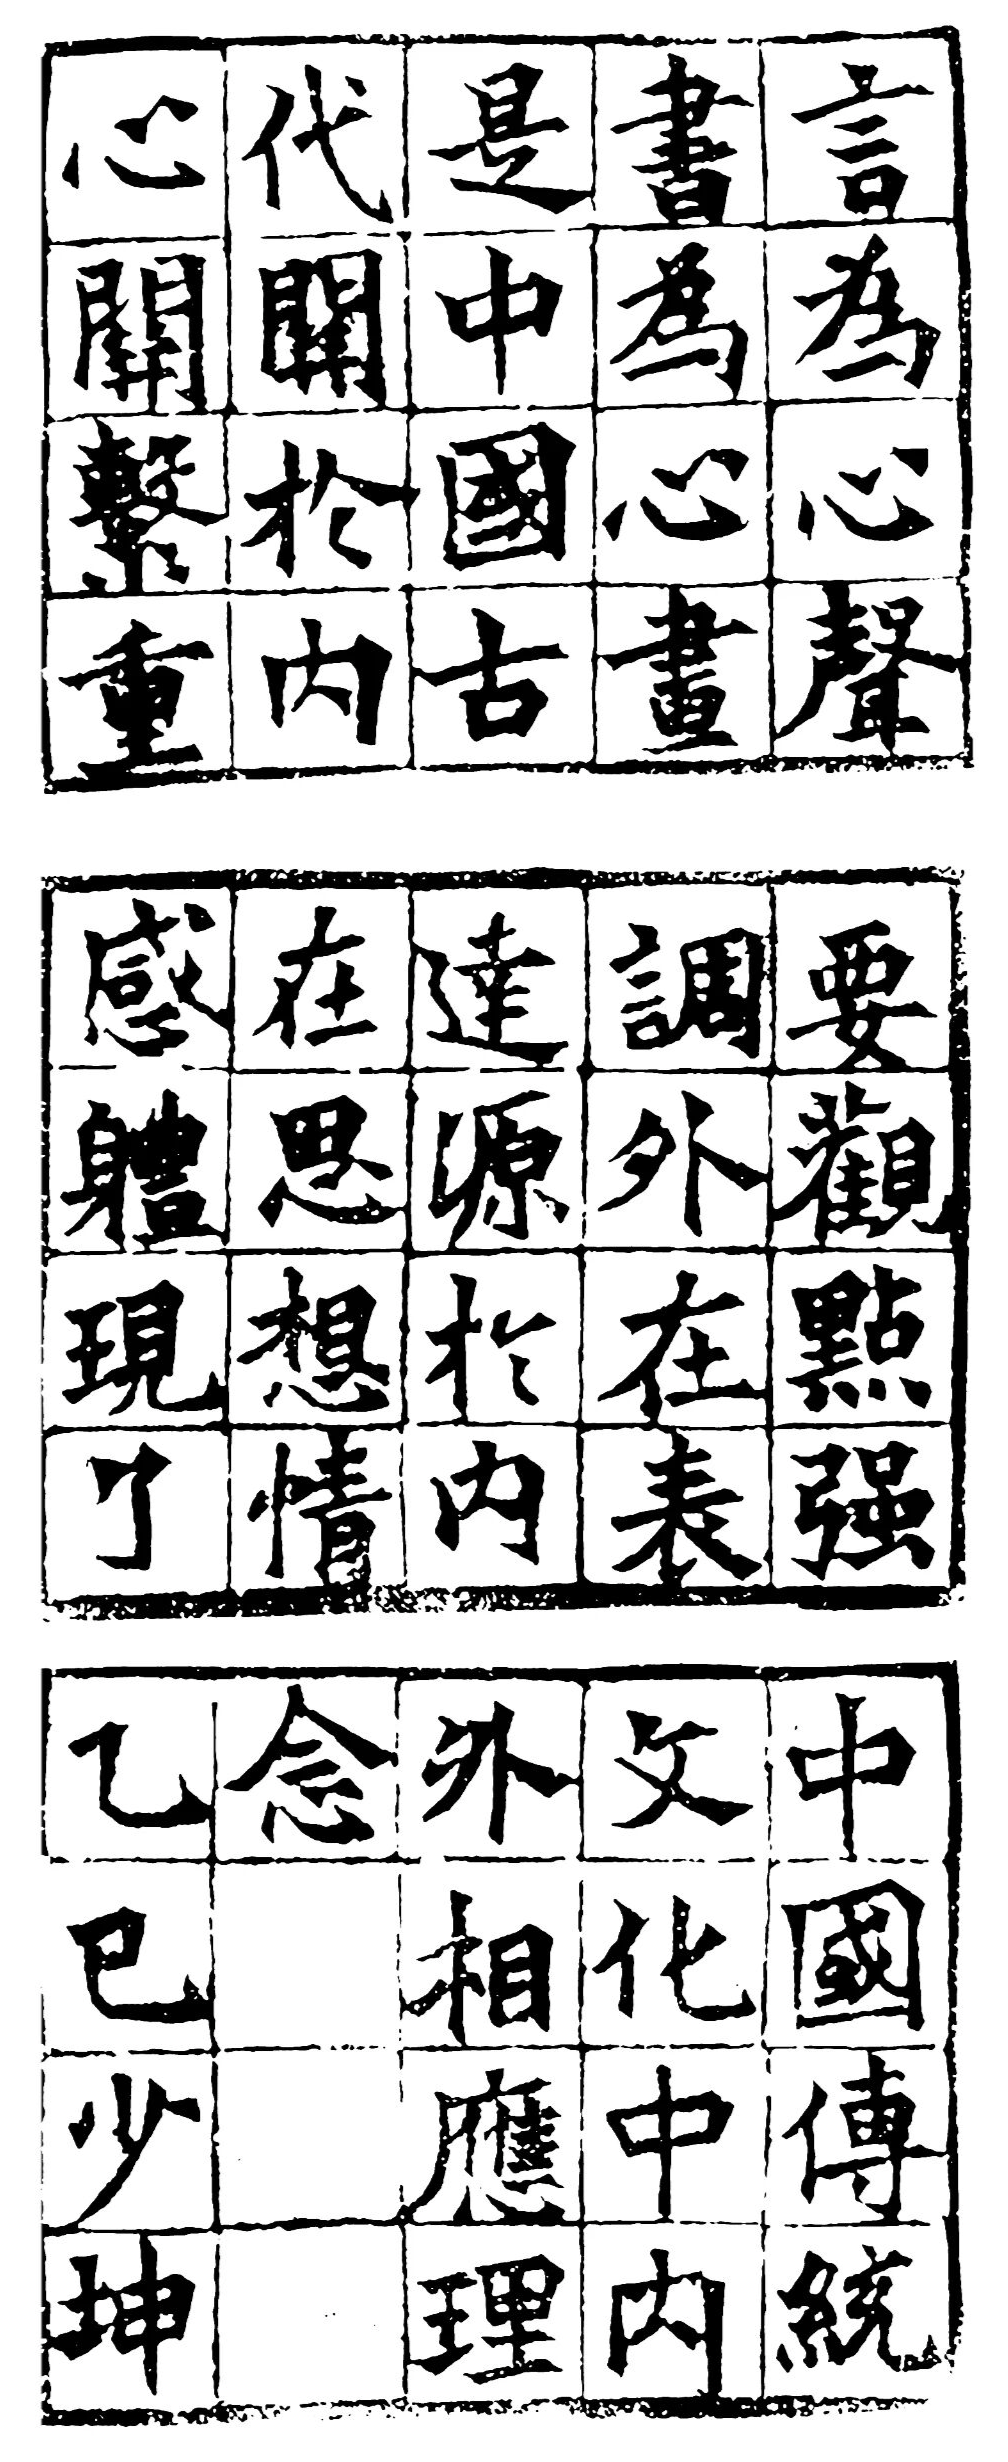 言為心聲
書為心畫
是中國古
代關於内
心關繫重
要觀點强
調外在表
達源於内
在思想情
感體現了
中國傳統
文化中内
外相應理
念
乙巳少坤